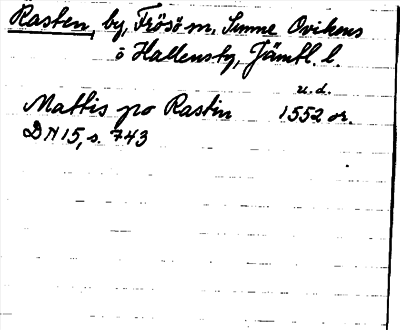 Rasten, by, Frösö m, Sunne Ovikens
o Hallensby, Jämtl. l.
u.d.
Mattis po Rastin 1552 or.
DN 15, s. 743